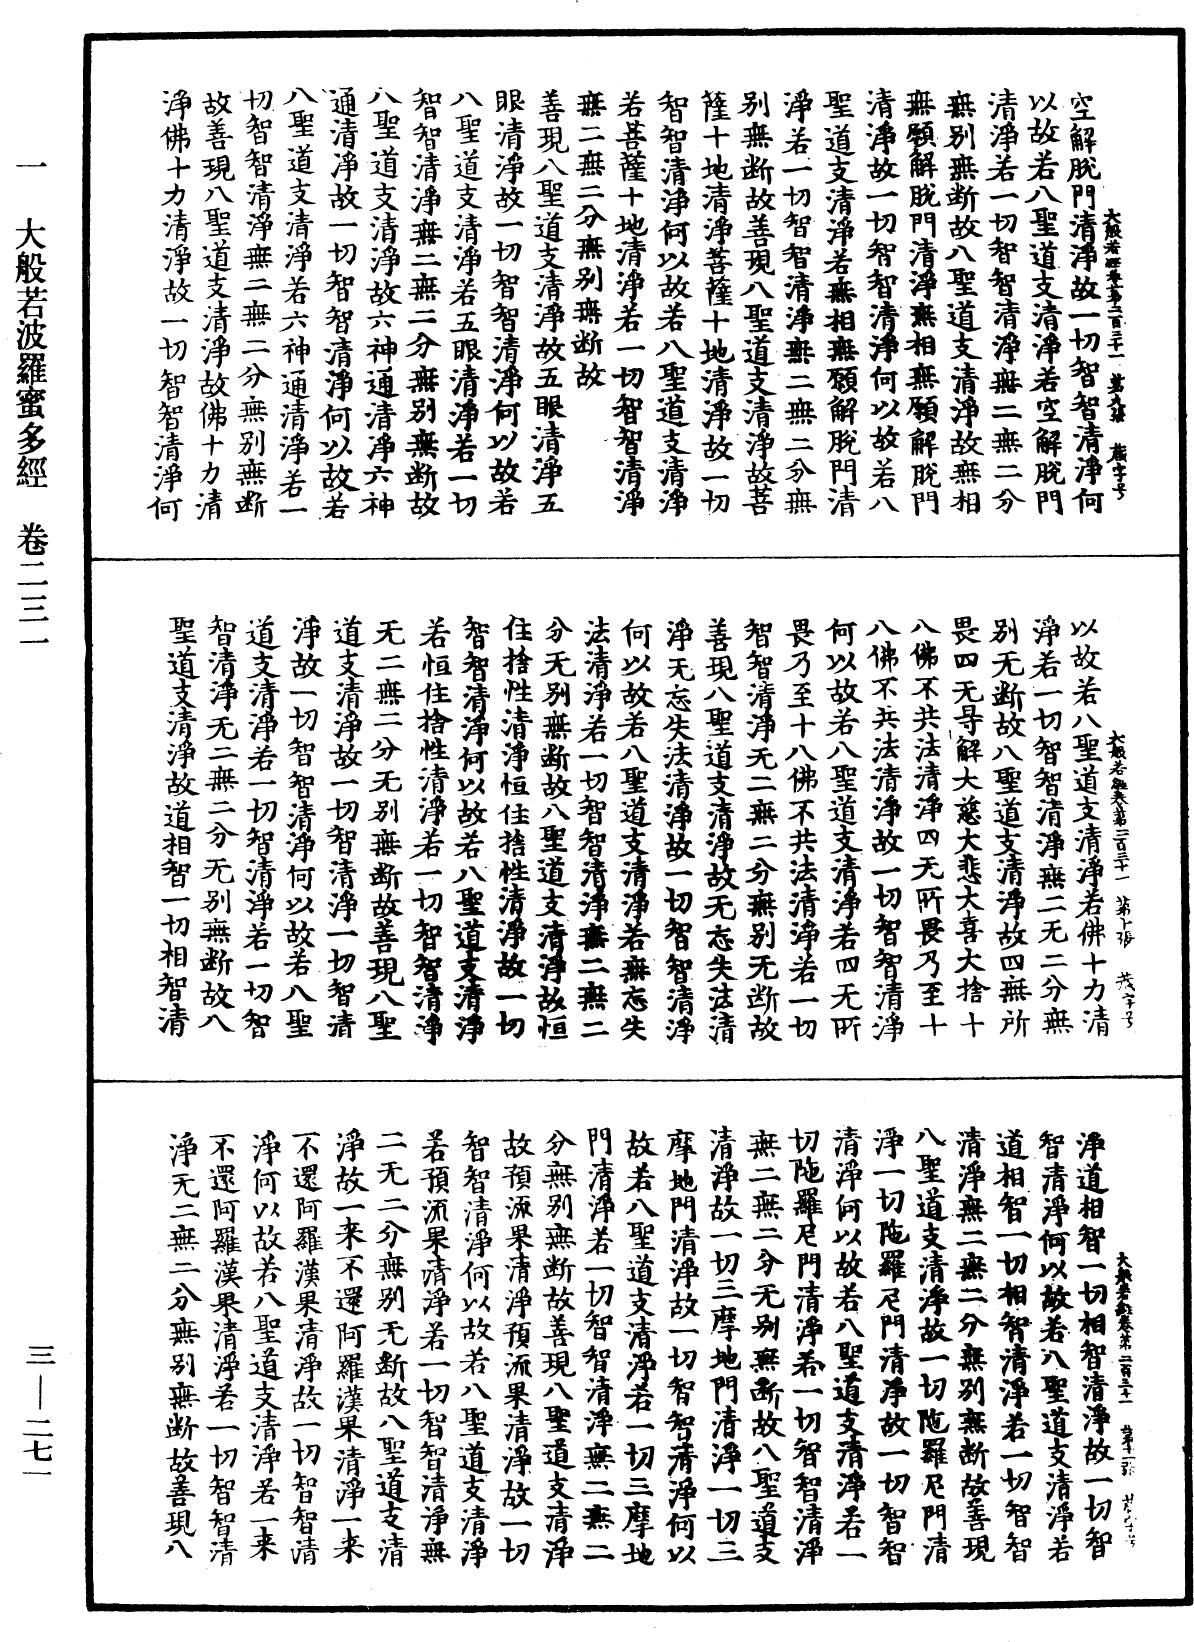 大般若經卷第二百三十一 第九張 藏字号
空解脫門清淨故一切智智清淨何
以故若八聖道支清淨若空解脫門
清淨若一切智智清淨無二無二分
無別無斷故八聖道支清淨故無相
無願解脫門清淨無相無願解脫門
清淨故一切智智清淨何以故若八
聖道支清淨若無相無願解脫門清
淨若一切智智清淨無二無二分無
別無斷故善現八聖道支清淨故菩
薩十地清淨菩薩十地清淨故一切
智智清淨何以故若八聖道支清淨
若菩薩十地清淨若一切智智清淨
無二無二分無別無斷故
善現八聖道支清淨故五眼清淨五
眼清淨故一切智智清淨何以故若
八聖道支清淨若五眼清淨若一切
智智清淨無二無二分無別無斷故
八聖道支清淨故六神通清淨六神
通清淨故一切智智清淨何以故若
八聖道支清淨若六神通清淨若一
切智智清淨無二無二分無別無斷
故善現八聖道支清淨故佛十力清
淨佛十力清淨故一切智智清淨何
大般若經卷第二百三十一 第十張
以故若八聖道支清淨若佛十力清
淨若一切智智清淨無二无二分無
別无斷故八聖道支清淨故四無所
畏四无导解大慈大悲大喜大捨十
八佛不共法清淨四无所畏乃至十
八佛不共法清淨故一切智智清淨
何以故若八聖道支清淨若四无所
畏乃至十八佛不共法清淨若一切
智智清淨无二無二分無别无斷故
善現八聖道支清淨故无忘失法清
淨无忘失法清淨故一切智智清淨
何以故若八聖道支清淨若無忘失
法清淨若一切智智清淨無二無二
分无别無斷故八聖道支清淨故恒
住捨性清淨恒住捨性清淨故一切
智智清淨何以故若八聖道支清淨
若恒住捨性清淨若一切智智清淨
无二無二分无别無斷故善現八聖
道支清淨故一切智清淨一切智清
淨故一切智智清淨何以故若八聖
道支清淨若一切智清淨若一切智
智清淨无二無二分无别無斷故八
聖道支清淨故道相智一切相智清
大般若經卷第二百三十一
淨道相智一切相智清淨故一切智
智清淨何以故若八聖道支清淨若
道相智一切相智清淨若一切智智
清淨無二無二分無別無斷故善現
八聖道支清淨故一切陁羅尼門清
淨一切陁羅尼門清淨故一切智智
清淨何以故若八聖道支清淨若一
切陁羅尼門清淨若一切智智清淨
無二無二分无别無斷故八聖道支
清淨故一切三摩地門清淨一切三
摩地門清淨故一切智智清淨何以
故若八聖道支清淨若一切三摩地
門清淨若一切智智清淨無二無二
分無别無斷故善現八聖道支清淨
故預流果清淨預流果清淨故一切
智智清淨何以故若八聖道支清淨
若預流果清淨若一切智智清淨無
二无二分無别无斷故八聖道支清
淨故一来不還阿羅漢果清淨一来
不還阿羅漢果清淨故一切智智清
淨何以故若八聖道支清淨若一来
不還阿羅漢果清淨若一切智智清
淨无二無二分無别無斷故善現八
一 大般若波羅蜜多經 卷二三一
三—二七一